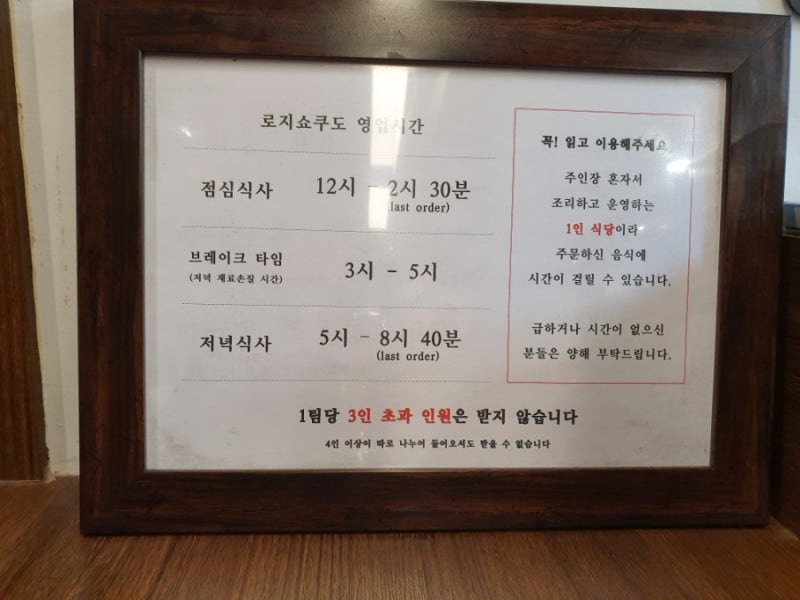 로지쇼쿠도 영업시간
점심식사 12시 - 2시 30분
(last order)
브레이크 타임
(저녁 재료손질 시간)
3시 - 5시
저녁식사 5시 - 8시 40분
(last order)
꼭! 읽고 이용해주세요
주인장 혼자서
조리하고 운영하는
1인 식당이라
주문하신 음식에
시간이 걸릴 수 있습니다.
급하거나 시간이 없으신
분들은 양해 부탁드립니다.
1팀당 3인 초과 인원은 받지 않습니다
4인 이상이 따로 나누어 들어오셔도 받을 수 없습니다